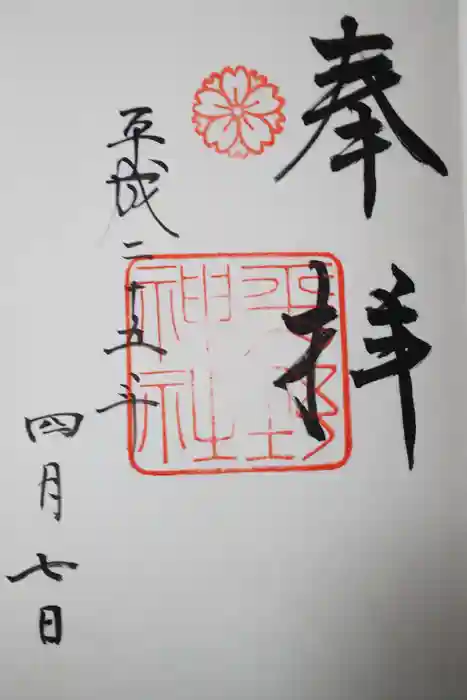 奉拝
平野神社
平成二十五年
四月七日